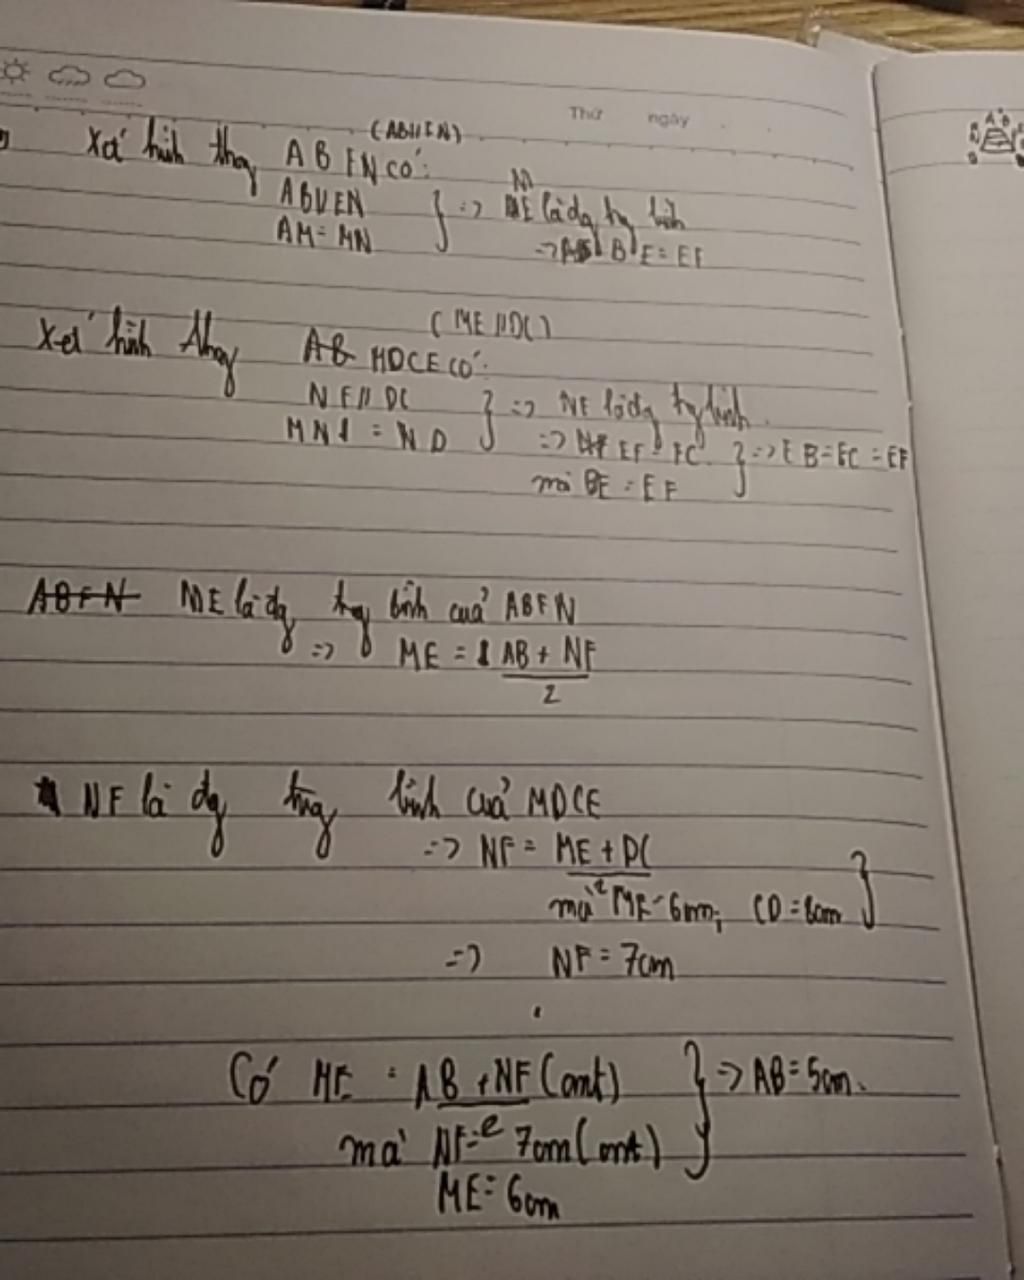 Thứ ngày
Xét hình thang ABFN có: (AB//FN)
AB//EN
AM = MN
} => ME là đg tg bình
=> BE = EF
Xét hình thang MDCE có: (ME//DC)
NF//DC
MN = ND
} => NF là đg tg bình.
=> EF = FC
mà BE = EF
} => EB = EC = EF
ME là đg tg bình của ABFN
=> ME = AB + NF
2
NF là đg trung bình của MDCE
=> NF = ME + DC
2
mà ME = 6cm, CD = 8cm }
=> NF = 7cm
Có ME = AB + NF (cmt)
2
mà NF = 7cm (cmt)
ME = 6cm
} => AB = 5cm.